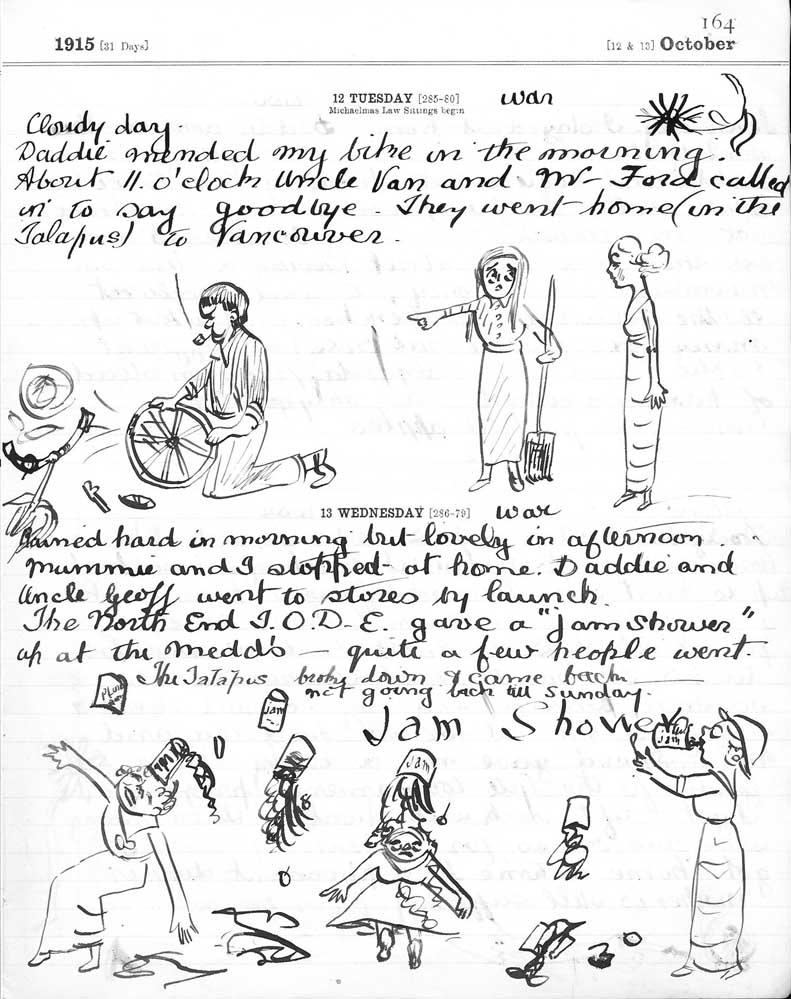 164
1915 [31 Days] [12 & 13] October
12 TUESDAY [285-80] war
Michaelmas Law Sittings begin
Cloudy day
Daddie mended my bike in the morning.
About 11. o'clock Uncle Van and Mr Ford called
in to say goodbye. They went home (in the
Talapus) to Vancouver.
13 WEDNESDAY [286-79] war
Rained hard in morning but lovely in afternoon.
Mummie and I stopped at home. Daddie and
Uncle Geoff went to stores by launch.
The North End I.O.D.E. gave a "jam shower"
up at the Medd's — quite a few people went.
The Talapus broke down & came back
not going back till Sunday.
Plum
Jam
Jam Shower
Jam
Jam
Jam